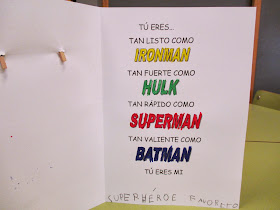 TÚ ERES...
TAN LISTO COMO
IRONMAN
TAN FUERTE COMO
HULK
TAN RÁPIDO COMO
SUPERMAN
TAN VALIENTE COMO
BATMAN
TÚ ERES MI
SUPERHÉROE FAVORITO